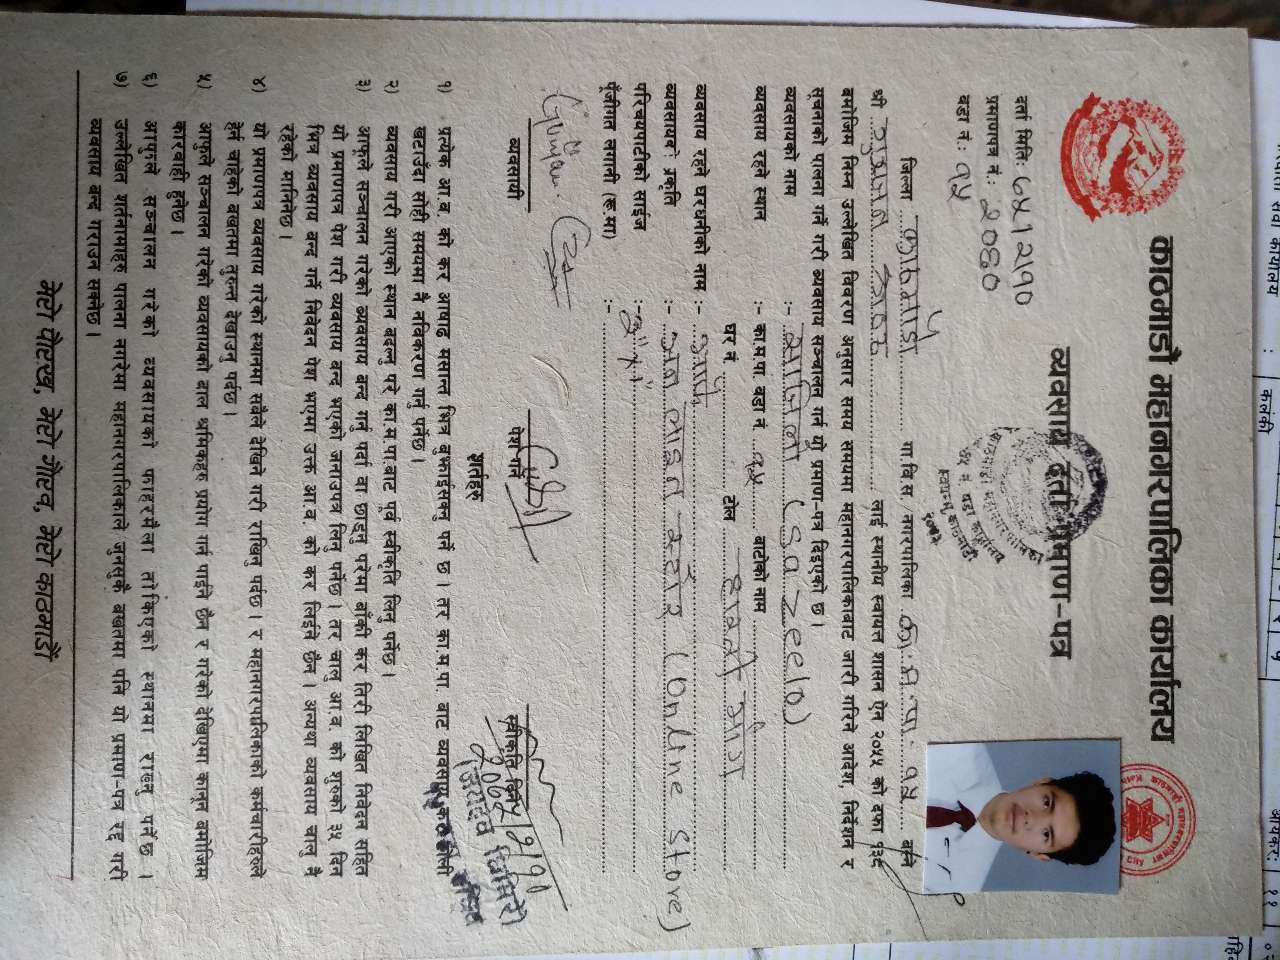 काठमाडौं महानगरपालिका कार्यालय
व्यवसाय दर्ता प्रमाण-पत्र
दर्ता मिति:
प्रमाणपत्र नं.: 2080
वडा नं.: १५
जिल्ला काठमाडौं गा.वि.स./नगरपालिका का.म.पा. १५ बस्ने
श्री लाई स्थानीय स्वायत्त शासन ऐन २०५५ को दफा १३६
बमोजिम निम्न उल्लेखित विवरण अनुसार समय समयमा महानगरपालिकाबाट जारी गरिने आदेश, निर्देशन र
सूचनाको पालना गर्ने गरी व्यवसाय सञ्चालन गर्न यो प्रमाण-पत्र दिइएको छ ।
व्यवसायको नाम :- (Sazeelo)
व्यवसाय रहने स्थान :- का.म.पा. वडा नं. १५ बाटोको नाम
घर नं. टोल
व्यवसाय रहने घरधनीको नाम :-
व्यवसायको प्रकृति :- अनलाइन स्टोर (Online Store)
परिचयपाटीको साईज :-
पूँजीगत लगानी (रू.मा) :-
व्यवसायी
पेश गर्ने
स्वीकृति दिने
शर्तहरु
१) प्रत्येक आ.व. को कर आषाढ मसान्त भित्र बुझाईसक्नु पर्ने छ । तर का.म.पा. बाट व्यवसाय
खटाउँदा सोही समयमा नै नविकरण गर्नु पर्नेछ ।
२) व्यवसाय गरी आएको स्थान बदल्नु परे का.म.पा.बाट पूर्व स्वीकृति लिनु पर्नेछ ।
३) आफूले सञ्चालन गरेको व्यवसाय बन्द गर्नु पर्दा वा छाड्नु परेमा बाँकी कर तिरी लिखित निवेदन सहित
यो प्रमाणपत्र पेश गरी व्यवसाय बन्द भएको जनाउपत्र लिनु पर्नेछ । तर चालु आ.व. को शुरुको ३५ दिन
भित्र व्यवसाय बन्द गर्ने निवेदन पेश भएमा उक्त आ.व. को कर लिईने छैन । अन्यथा व्यवसाय चालु नै
रहेको मानिनेछ ।
४) यो प्रमाणपत्र व्यवसाय गरेको स्थानमा सबैले देखिने गरी राखिनु पर्दछ । र महानगरपालिकाको कर्मचारीहरुले
हेर्न चाहेको बखतमा तुरुन्त देखाउनु पर्दछ ।
५) आफूले सञ्चालन गरेको व्यवसायको बाल श्रमिकहरु प्रयोग गर्न पाईने छैन र गरेको देखिएमा कानून बमोजिम
कारवाही हुनेछ ।
६) आफूले सञ्चालन गरेको व्यवसायको फोहरमैला तोकिएको स्थानमा राख्नु पर्नेछ ।
७) उल्लेखित शर्तनामाहरु पालना नगरेमा महानगरपालिकाले जुनसुकै बखतमा पनि यो प्रमाण-पत्र रद्द गरी
व्यवसाय बन्द गराउन सक्नेछ ।
मेरो पौरख, मेरो गौरव, मेरो काठमाडौं